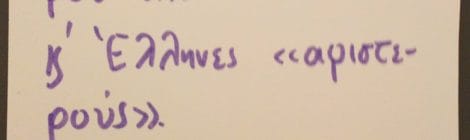 κ' Έλληνες «αριστε-
ρούς».